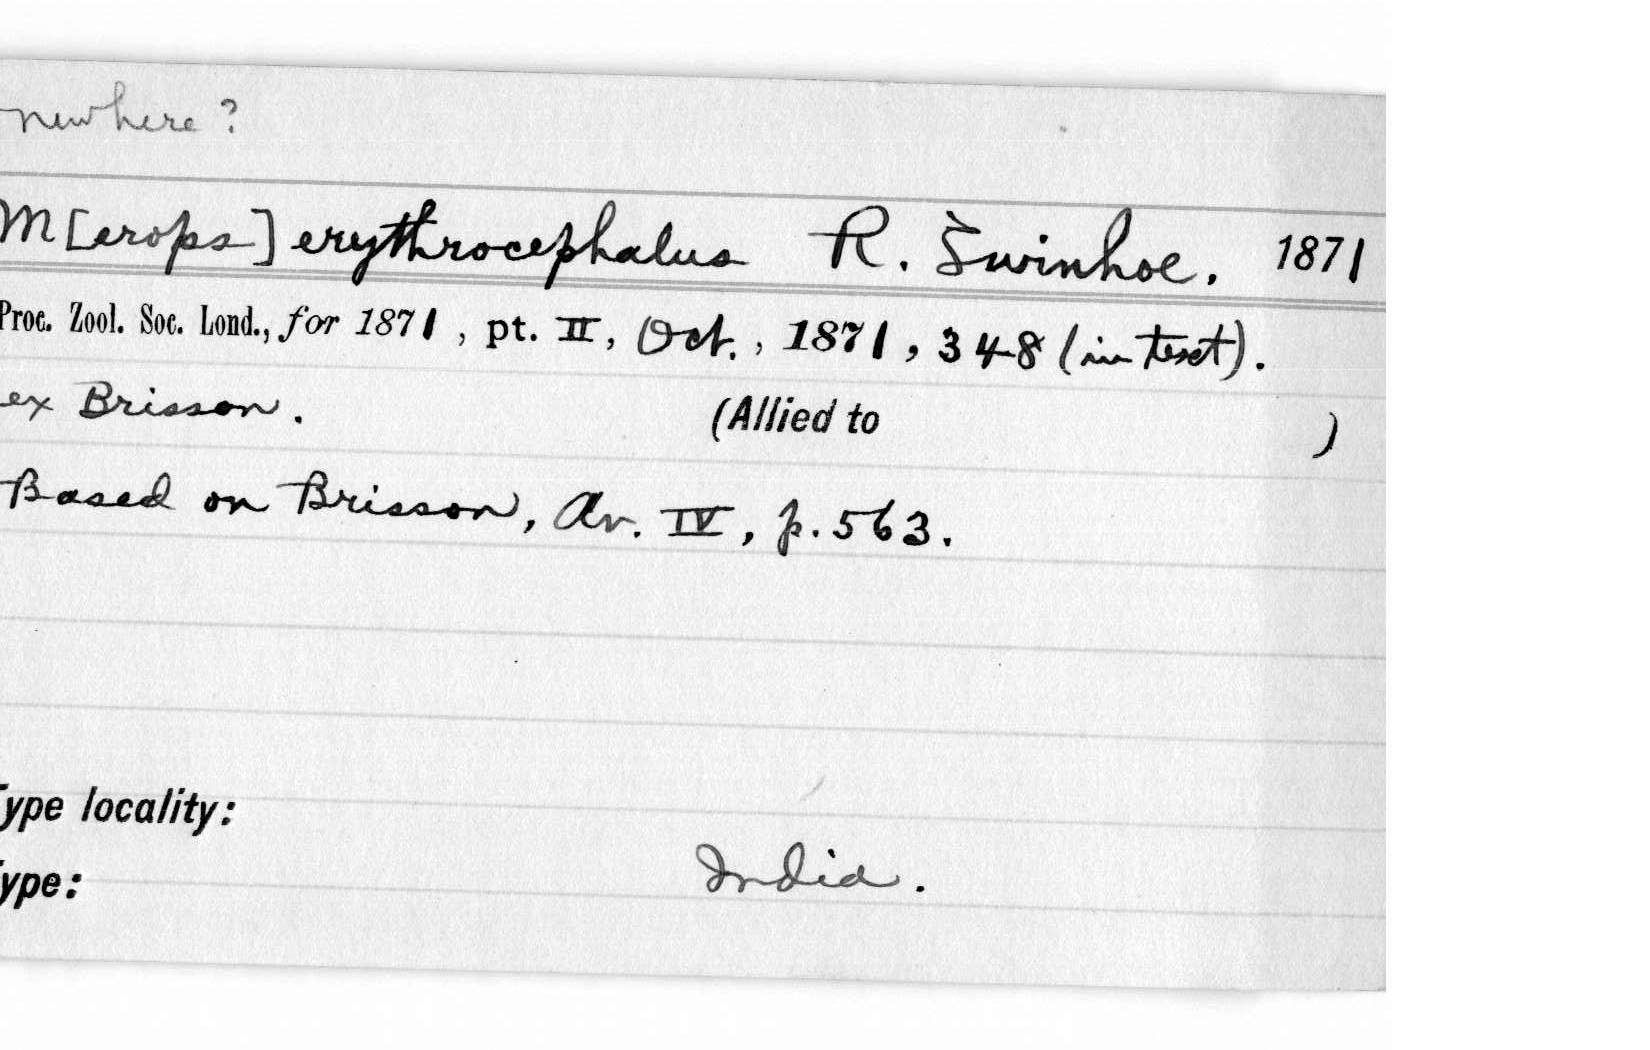 new here ?
M[erops] erythrocephalus R. Swinhoe. 1871
Proc. Zool. Soc. Lond., for 1871, pt. II, Oct., 1871, 348 (in text).
ex Brisson. (Allied to )
Based on Brisson, Av. IV, p. 563.
Type locality:
ype: India.